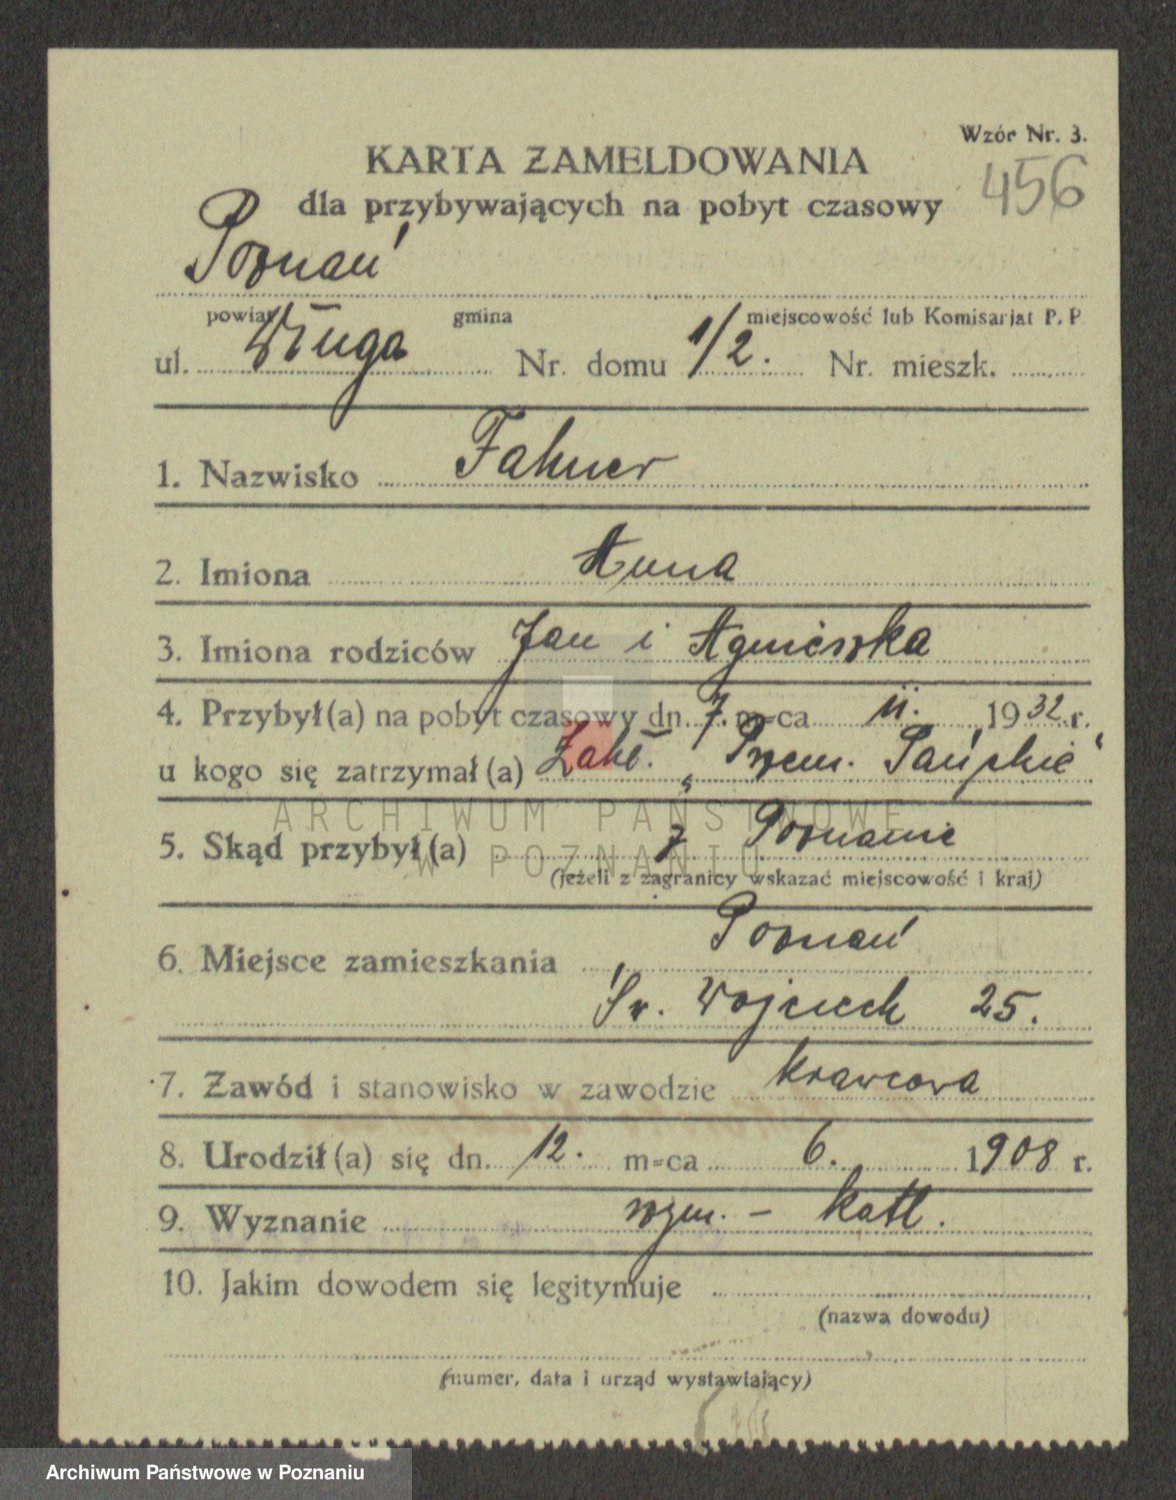 Wzór Nr. 3.
KARTA ZAMELDOWANIA
456
dla przybywających na pobyt czasowy
Poznań
powiat gmina miejscowość lub Komisarjat P. P.
ul. Długa Nr. domu 1/2. Nr. mieszk.
1. Nazwisko Fahner
2. Imiona Anna
3. Imiona rodziców Jan i Agnieszka
4. Przybył(a) na pobyt czasowy dn. 7. m-ca 11. 1932 r.
u kogo się zatrzymał(a) Zakł. „Przem. Pańskie“
ARCHIWUM PAŃSTWOWE
5. Skąd przybył(a) z Poznania
W POZNANIU
(jeżeli z zagranicy wskazać miejscowość i kraj)
6. Miejsce zamieszkania Poznań
Św. Wojciech 25.
7. Zawód i stanowisko w zawodzie krawcowa
8. Urodził(a) się dn. 12. m-ca 6. 1908 r.
9. Wyznanie rzym. - katl.
10. Jakim dowodem się legitymuje
(nazwa dowodu)
(numer, data i urząd wystawiający)
Archiwum Państwowe w Poznaniu